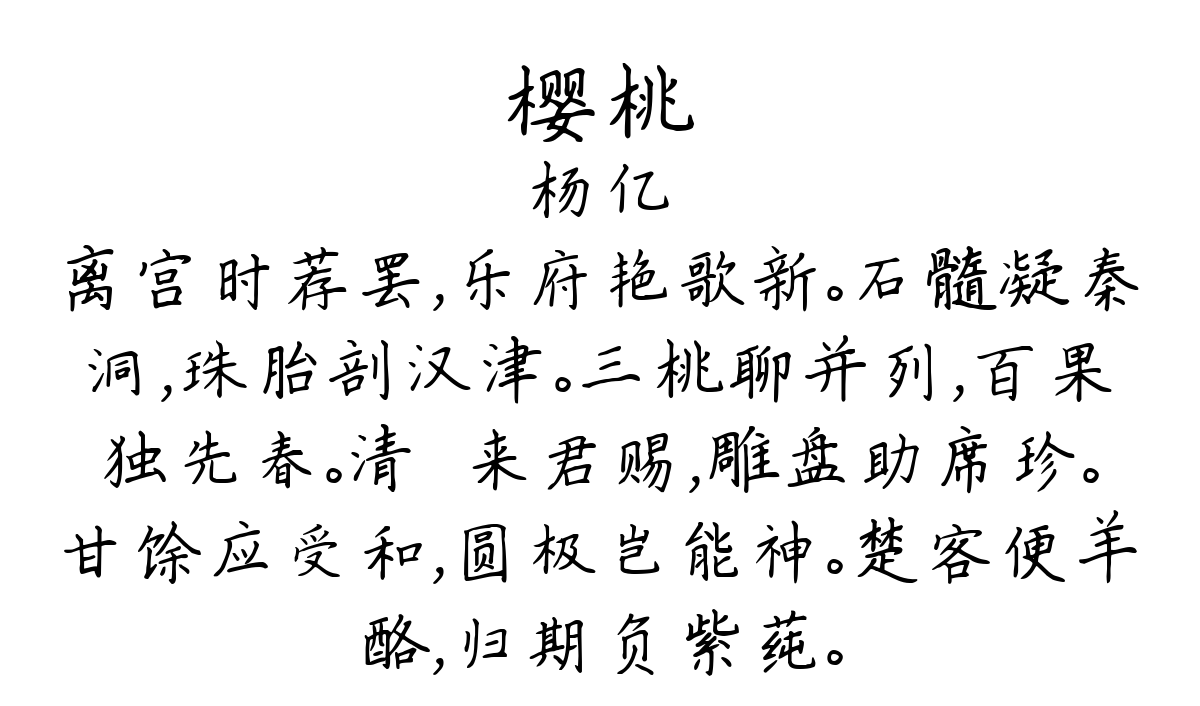 樱桃
杨亿
离宫时荐罢,乐府艳歌新。石髓凝秦
洞,珠胎剖汉津。三桃聊并列,百果
独先春。清 来君赐,雕盘助席珍。
甘馀应受和,圆极岂能神。楚客便羊
酪,归期负紫莼。